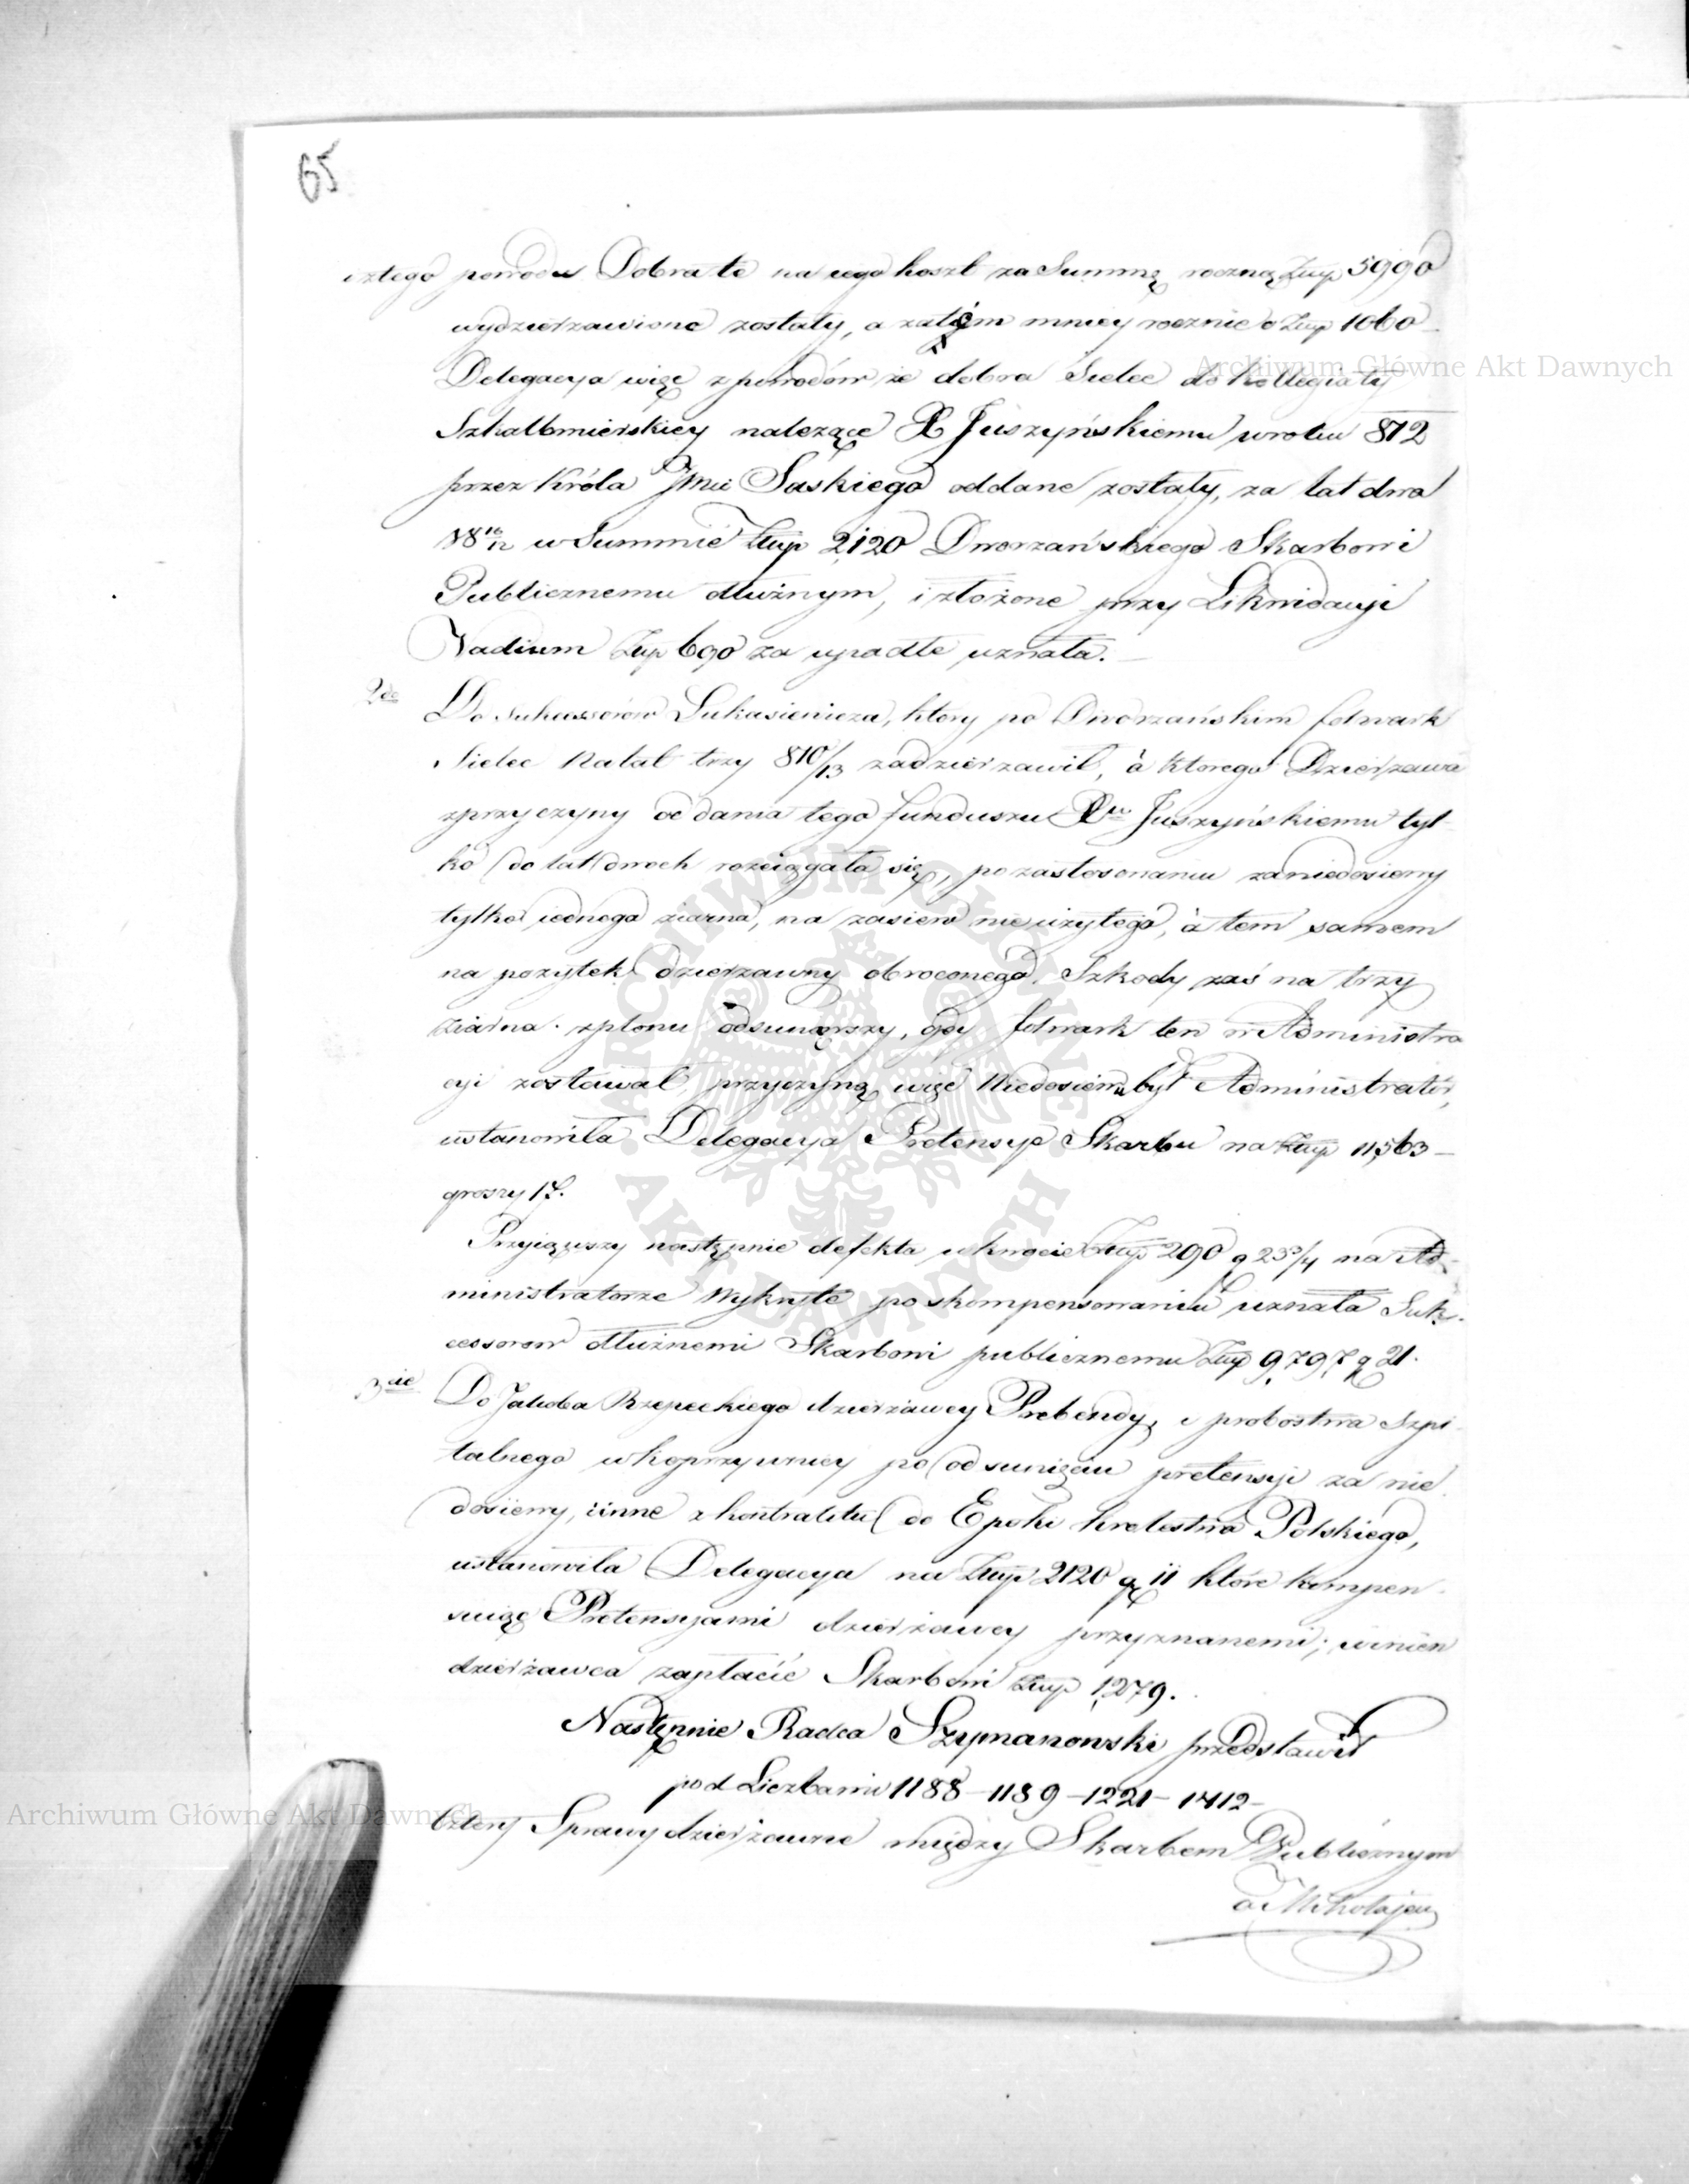 65
i z tego powodu Dobra te na iego koszt za Summę roczną Złup 5990
wydzierzawione zostały, a zatém mniey rocznie o Złup 1060
Delegacya więc z powodów że dobra Sielec do Kollegiaty
Szkalbmierskiey należące X Juszyńskiemu w roku 812
przez Króla Jmci Saskiego oddane zostały, za lat dwa
w Summie Złup 2,120 Dworzańskiego Skarbowi
Publicznemu dłużnym, i złożone przy Likwidacyi
Vadium Złup 690 za upadłe uznała.
2do Do Sukcessorów Łukasiewicza, ktory po Dworzańskim folwark
Sielec na lat trzy 810/13 zadzierzawił, à ktorego Dzierzawa
z przyczyny oddania tego funduszu Xu Juszyńskiemu tyl-
ko do lat dwoch rozciągała się, po zastosowaniu za niedosiewy
tylko iednego ziarna, na zasiew nie użytego, à tem samem
na pożytek dzierzawny obroconego. Szkody zaś na trzy
ziarna z plonu odsunąwszy, gdy folwark ten w Administra
cyi zostawał, przyczyną więc Niedosiewu był Administrator,
ustanowiła Delegacya Pretensye Skarbu na Złup 11,563 –
groszy 17.
Przyiąwszy następnie defekta w kwocie Złup 290 g 23 3/4 na Ad-
ministratorze wyknięte po skompensowaniu uznała Suk-
cessorow dłużnemi Skarbowi publicznemu Złup 9,797 g 21.
3cie Do Jakuba Rzepeckiego dzierżawcy Prebendy, i probostwa Szpi
talnego w Koprzywnicy po odsunięciu pretensyi za nie
dosiewy, i inne z kontraktu do Epoki Krolestwa Polskiego,
ustanowiła Delegacya na Złup 2120 g 11 które kompen
suiąc Pretensyami dzierżawcy przyznanemi; winien
dzierżawca zapłacić Skarbowi Złup 1,279.
Następnie Radca Szymanowski przedstawił
pod Liczbami 1188 – 1189 – 1221 – 1412 –
Cztery Sprawy dzierżawne między Skarbem Publicznym
a Mikołajem
Archiwum Główne Akt Dawnych
ARCHIWUM GŁÓWNE
AKT DAWNYCH
Archiwum Główne Akt Dawnych